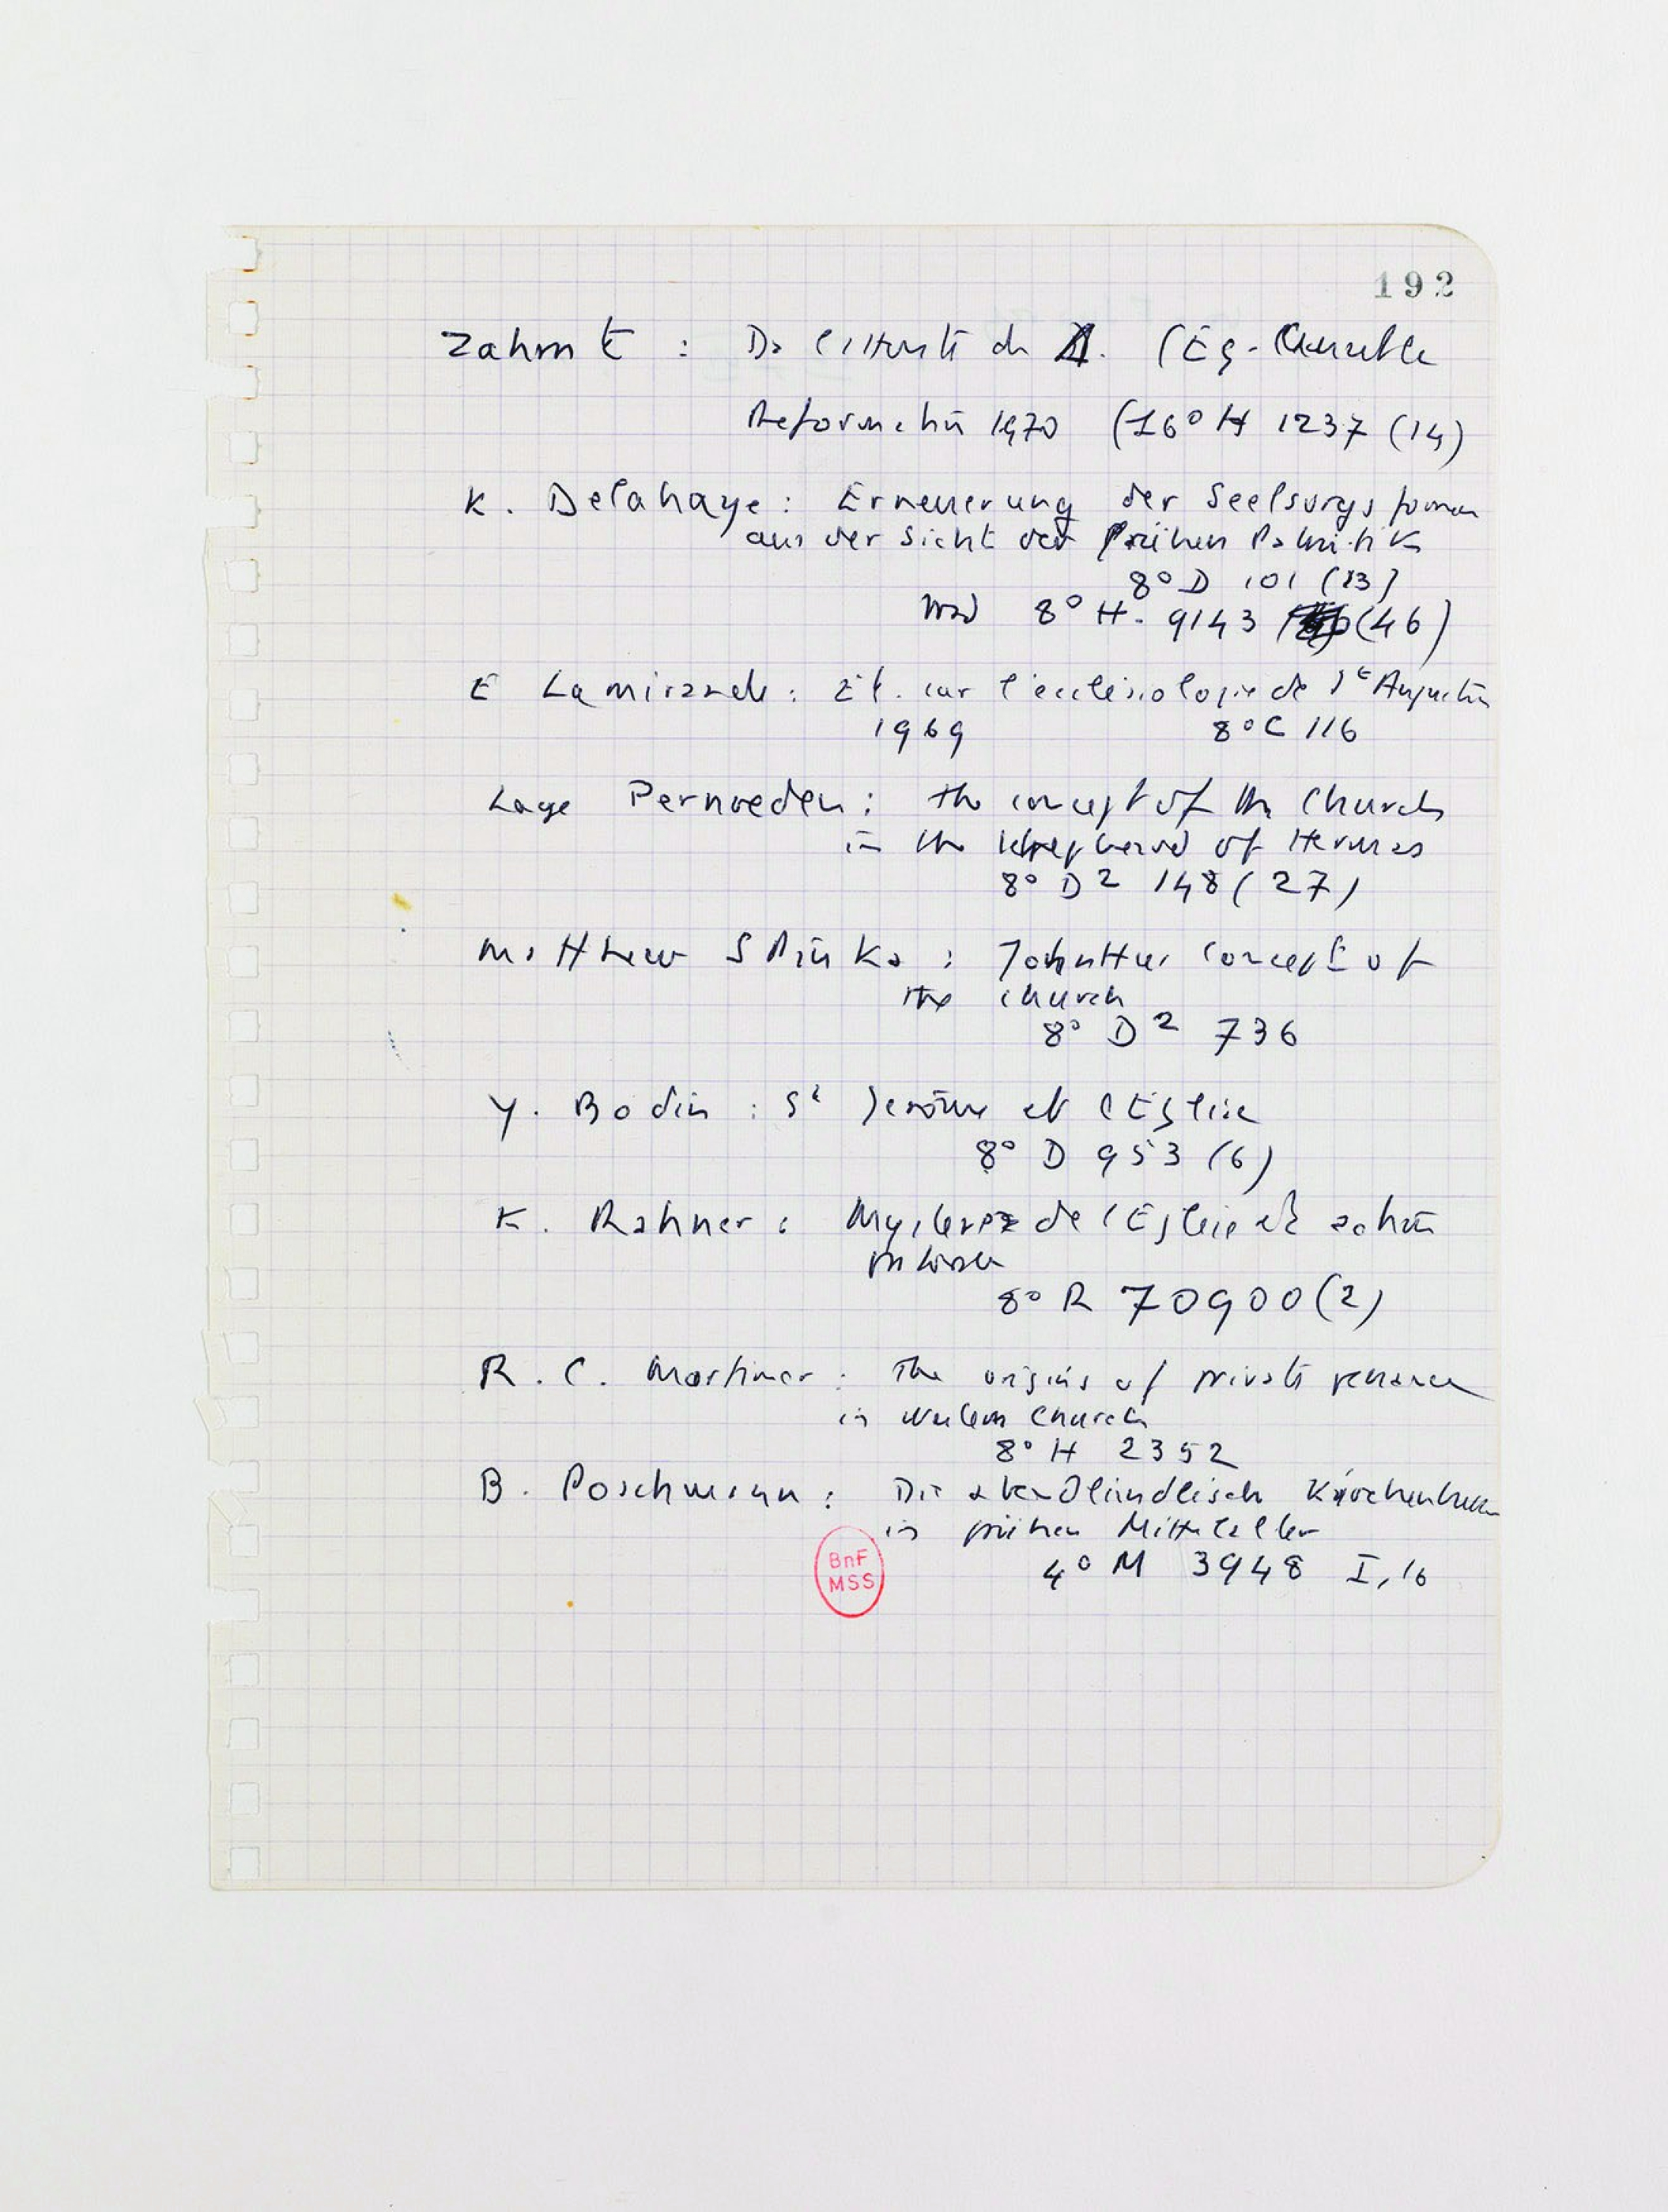 192
Zahrnt : De l'attente de (Eg-
Reformation 1970 (16° H 1237 (14)
K. Delahaye : Erneuerung der Seelsorgsformen
aus der Sicht der frühen Patristik
8° D 101 (13)
8° H. 9143 (46)
E Lamirande : Et. sur l'ecclésiologie de St Augustin
1969 8° C 116
Lage Pernveden : The concept of the Church
in the Shepherd of Hermas
8° D2 148 (27)
Matthew Spinka : John Hus' concept of
the church
8° D2 736
Y. Bodin : St Jérôme et l'Eglise
8° D 953 (6)
K. Rahner : Mystère de l'Eglise et action
pastorale
8° R 70900 (2)
R. C. Mortimer : The origins of private penance
in Western Church
8° H 2352
B. Poschmann : Die abendländische Kirchenbusse
in frühen Mittelalter
4° M 3948 I, 16
BnF
MSS